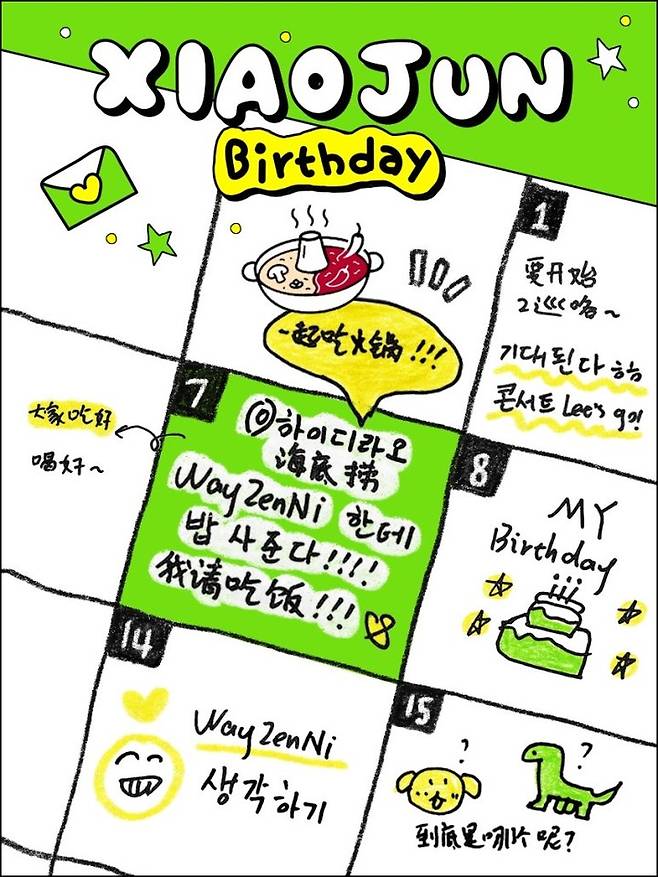 XIAOJUN
Birthday
1
要开始
2巡咯~
기대된다 하하
콘서트 Let's go?!
一起吃火锅!!!
7
@하이디라오
海底捞
WayZenNi 한테
밥 사준다!!!!
我请吃饭!!!
大家吃好
喝好~
8
MY
Birthday
14
WayZenNi
생각하기
15
? ?
到底是哪个呢?